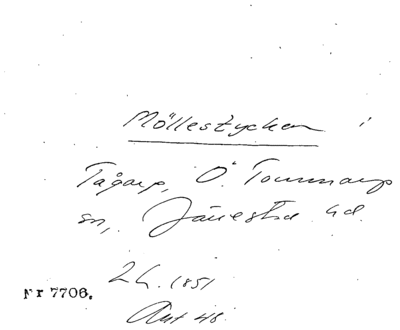 Möllestycken i
Tågarp, Ö. Tommarp
sn, Järrestad hd.
L L. 1851
Nr 7706.
Akt 48